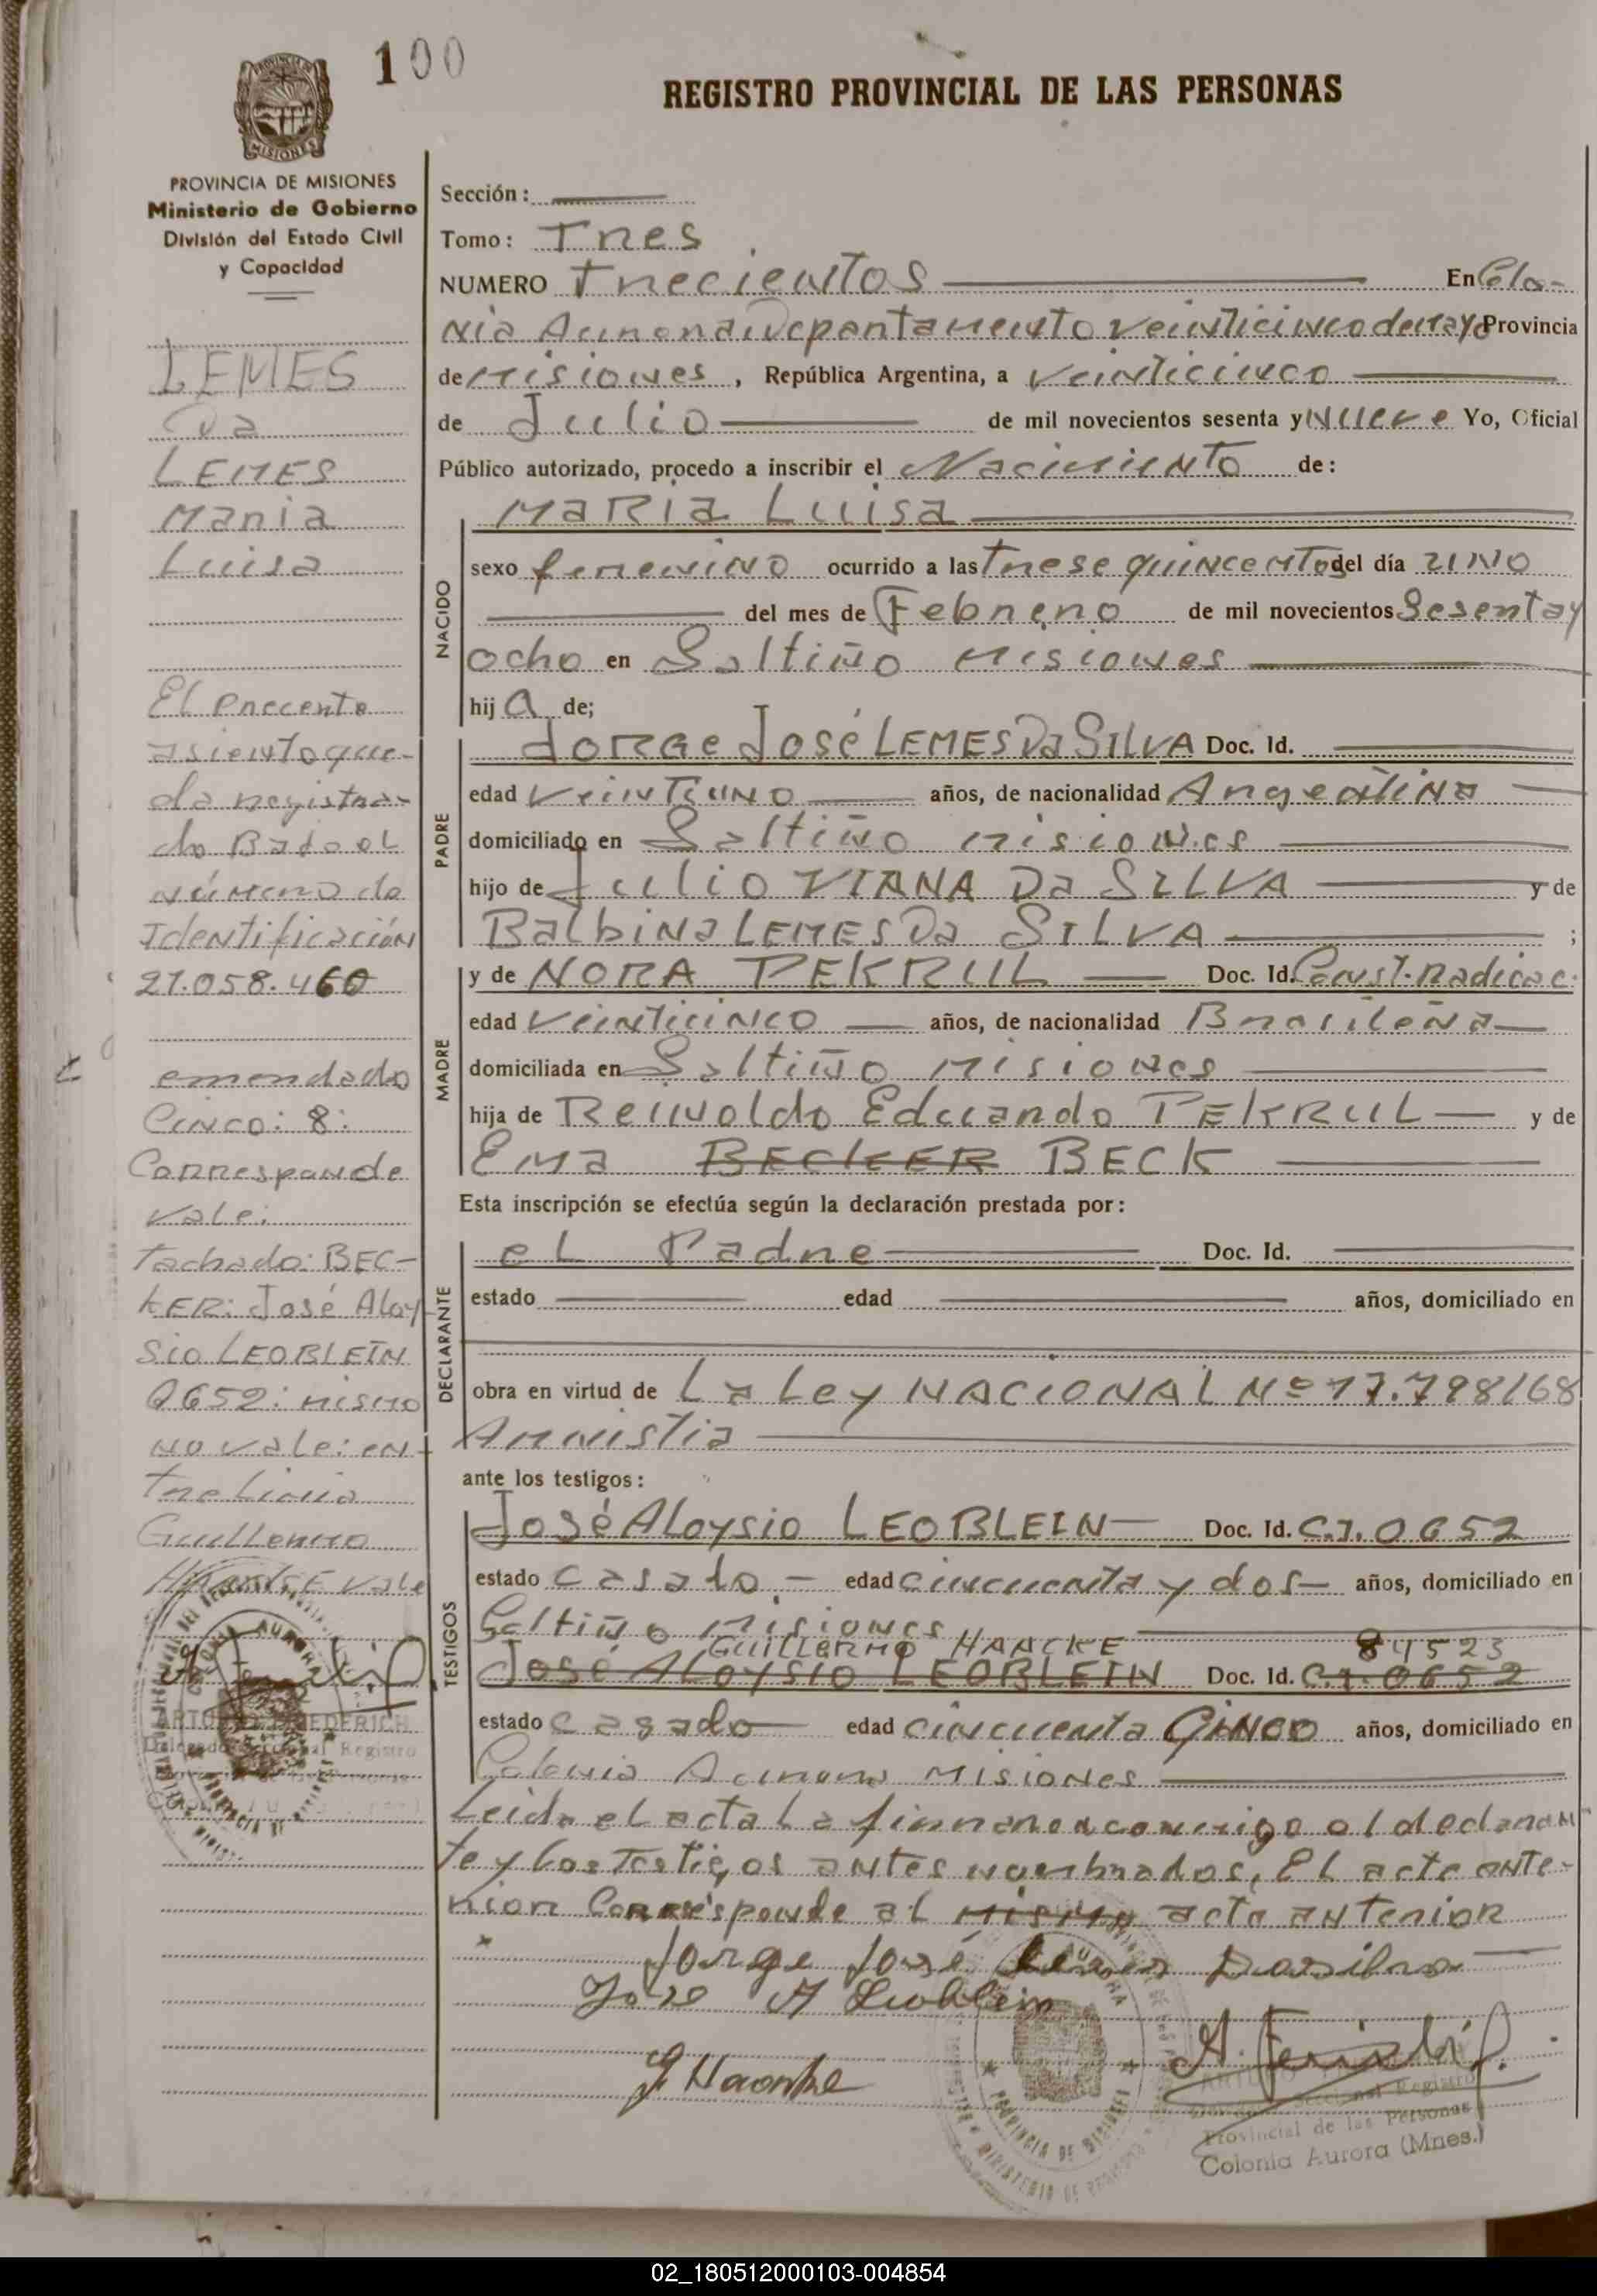 100
REGISTRO PROVINCIAL DE LAS PERSONAS
MISIONES
PROVINCIA DE MISIONES
Ministerio de Gobierno
División del Estado Civil
y Capacidad
LEMES
Da
LEMES
Maria
Luisa
El precente
asiento que-
da registra-
do Bajo el
número de
Identificación
21.058.460
emendado
Cinco: 8:
Corresponde
Vale:
tachado: BEC-
KER: José Aloy
Sio LEOBLEIN
0652: mismo
no vale: en-
tre linia
Guillermo
HAACKE vale
Sección:
Tomo: Tres
NUMERO Trecientos En Colo-
nia Aurora Departamento veinticinco de mayo Provincia
de Misiones, República Argentina, a Veinticinco
de Julio de mil novecientos sesenta y Nueve Yo, Oficial
Público autorizado, procedo a inscribir el Nacimiento de:
MARIA Luisa
NACIDO
sexo femenino ocurrido a las trese quince Htos del día uno
del mes de Febrero de mil novecientos Sesenta y
ocho en Saltiño Misiones
hij a de;
PADRE
JORGE José LEMES Da SILVA Doc. Id.
edad Veintiuno años, de nacionalidad Argentina
domiciliado en Saltiño Misiones
hijo de Julio VIANA Da SILVA y de
Balbina LEMES Da SILVA ;
MADRE
y de NORA PEKRUL Doc. Id. Const. Radicac.
edad Veinticinco años, de nacionalidad Brasileña
domiciliada en Saltiño Misiones
hija de Reinoldo Eduardo PEKRUL y de
Ema BECKER BECK
Esta inscripción se efectúa según la declaración prestada por:
DECLARANTE
el Padre Doc. Id.
estado edad años, domiciliado en
obra en virtud de La Ley NACIONAL Nº 17.798/68
Amnistia
ante los testigos:
TESTIGOS
José Aloysio LEOBLEIN Doc. Id. C.I. 0652
estado Casado edad cincuenta y dos años, domiciliado en
Saltiño Misiones
Guillermo HAACKE 84523
José ALOYSIO LEOBLEIN Doc. Id. C.I. 0652
estado casado edad cincuenta CINCO años, domiciliado en
Colonia Aurora Misiones
Leida el acta La firman conmigo el declaran
te y los Testigos antes nombrados, El acta ante-
rior Corresponde al mismo acta anterior
Jorge José Lemes Dasilva
Jose A Leoblein
G Haacke
Provincial de las Personas
Colonia Aurora (Mnes.)
02_180512000103-004854